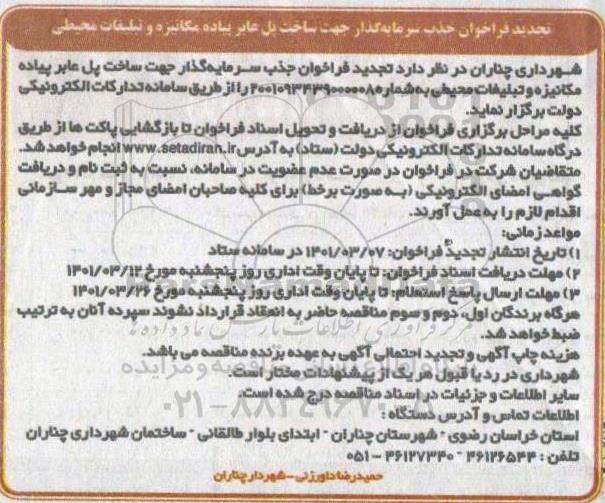 تجدید فراخوان جذب سرمایه‌گذار جهت ساخت پل عابر پیاده مکانیزه و تبلیغات محیطی
شهرداری چناران در نظر دارد تجدید فراخوان جذب سرمایه‌گذار جهت ساخت پل عابر پیاده
مکانیزه و تبلیغات محیطی به شماره ۲۰۰۱۰۹۳۴۳۹۰۰۰۰۰۸ را از طریق سامانه تدارکات الکترونیکی
دولت برگزار نماید.
کلیه مراحل برگزاری فراخوان از دریافت و تحویل اسناد فراخوان تا بازگشایی پاکت ها از طریق
درگاه سامانه تدارکات الکترونیکی دولت (ستاد) به آدرس www.setadiran.ir انجام خواهد شد.
متقاضیان شرکت در فراخوان در صورت عدم عضویت در سامانه، نسبت به ثبت نام و دریافت
گواهی امضای الکترونیکی (به صورت برخط) برای کلیه صاحبان امضای مجاز و مهر سازمانی
اقدام لازم را به عمل آورند.
مواعد زمانی:
۱) تاریخ انتشار تجدید فراخوان: ۱۴۰۱/۰۳/۰۷ در سامانه ستاد
۲) مهلت دریافت اسناد فراخوان: تا پایان وقت اداری روز پنجشنبه مورخ ۱۴۰۱/۰۳/۱۲
۳) مهلت ارسال پاسخ استعلام: تا پایان وقت اداری روز پنجشنبه مورخ ۱۴۰۱/۰۳/۲۶
هرگاه برندگان اول، دوم و سوم مناقصه حاضر به انعقاد قرارداد نشوند سپرده آنان به ترتیب
ضبط خواهد شد.
هزینه چاپ آگهی و تجدید احتمالی آگهی به عهده برنده مناقصه می باشد.
شهرداری در رد یا قبول هر یک از پیشنهادات مختار است.
سایر اطلاعات و جزئیات در اسناد مناقصه درج شده است.
۰۲۱-۸۸۳۴۹۶۷۰
اطلاعات تماس و آدرس دستگاه :
استان خراسان رضوی - شهرستان چناران - ابتدای بلوار طالقانی - ساختمان شهرداری چناران
تلفن : ۴۶۱۲۶۵۴۴ - ۴۶۱۲۷۳۴۰ - ۰۵۱
حمیدرضا داورزنی - شهردار چناران